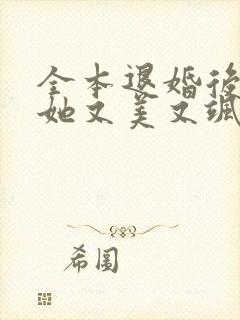 全本退婚後
她又美又颯
希圖